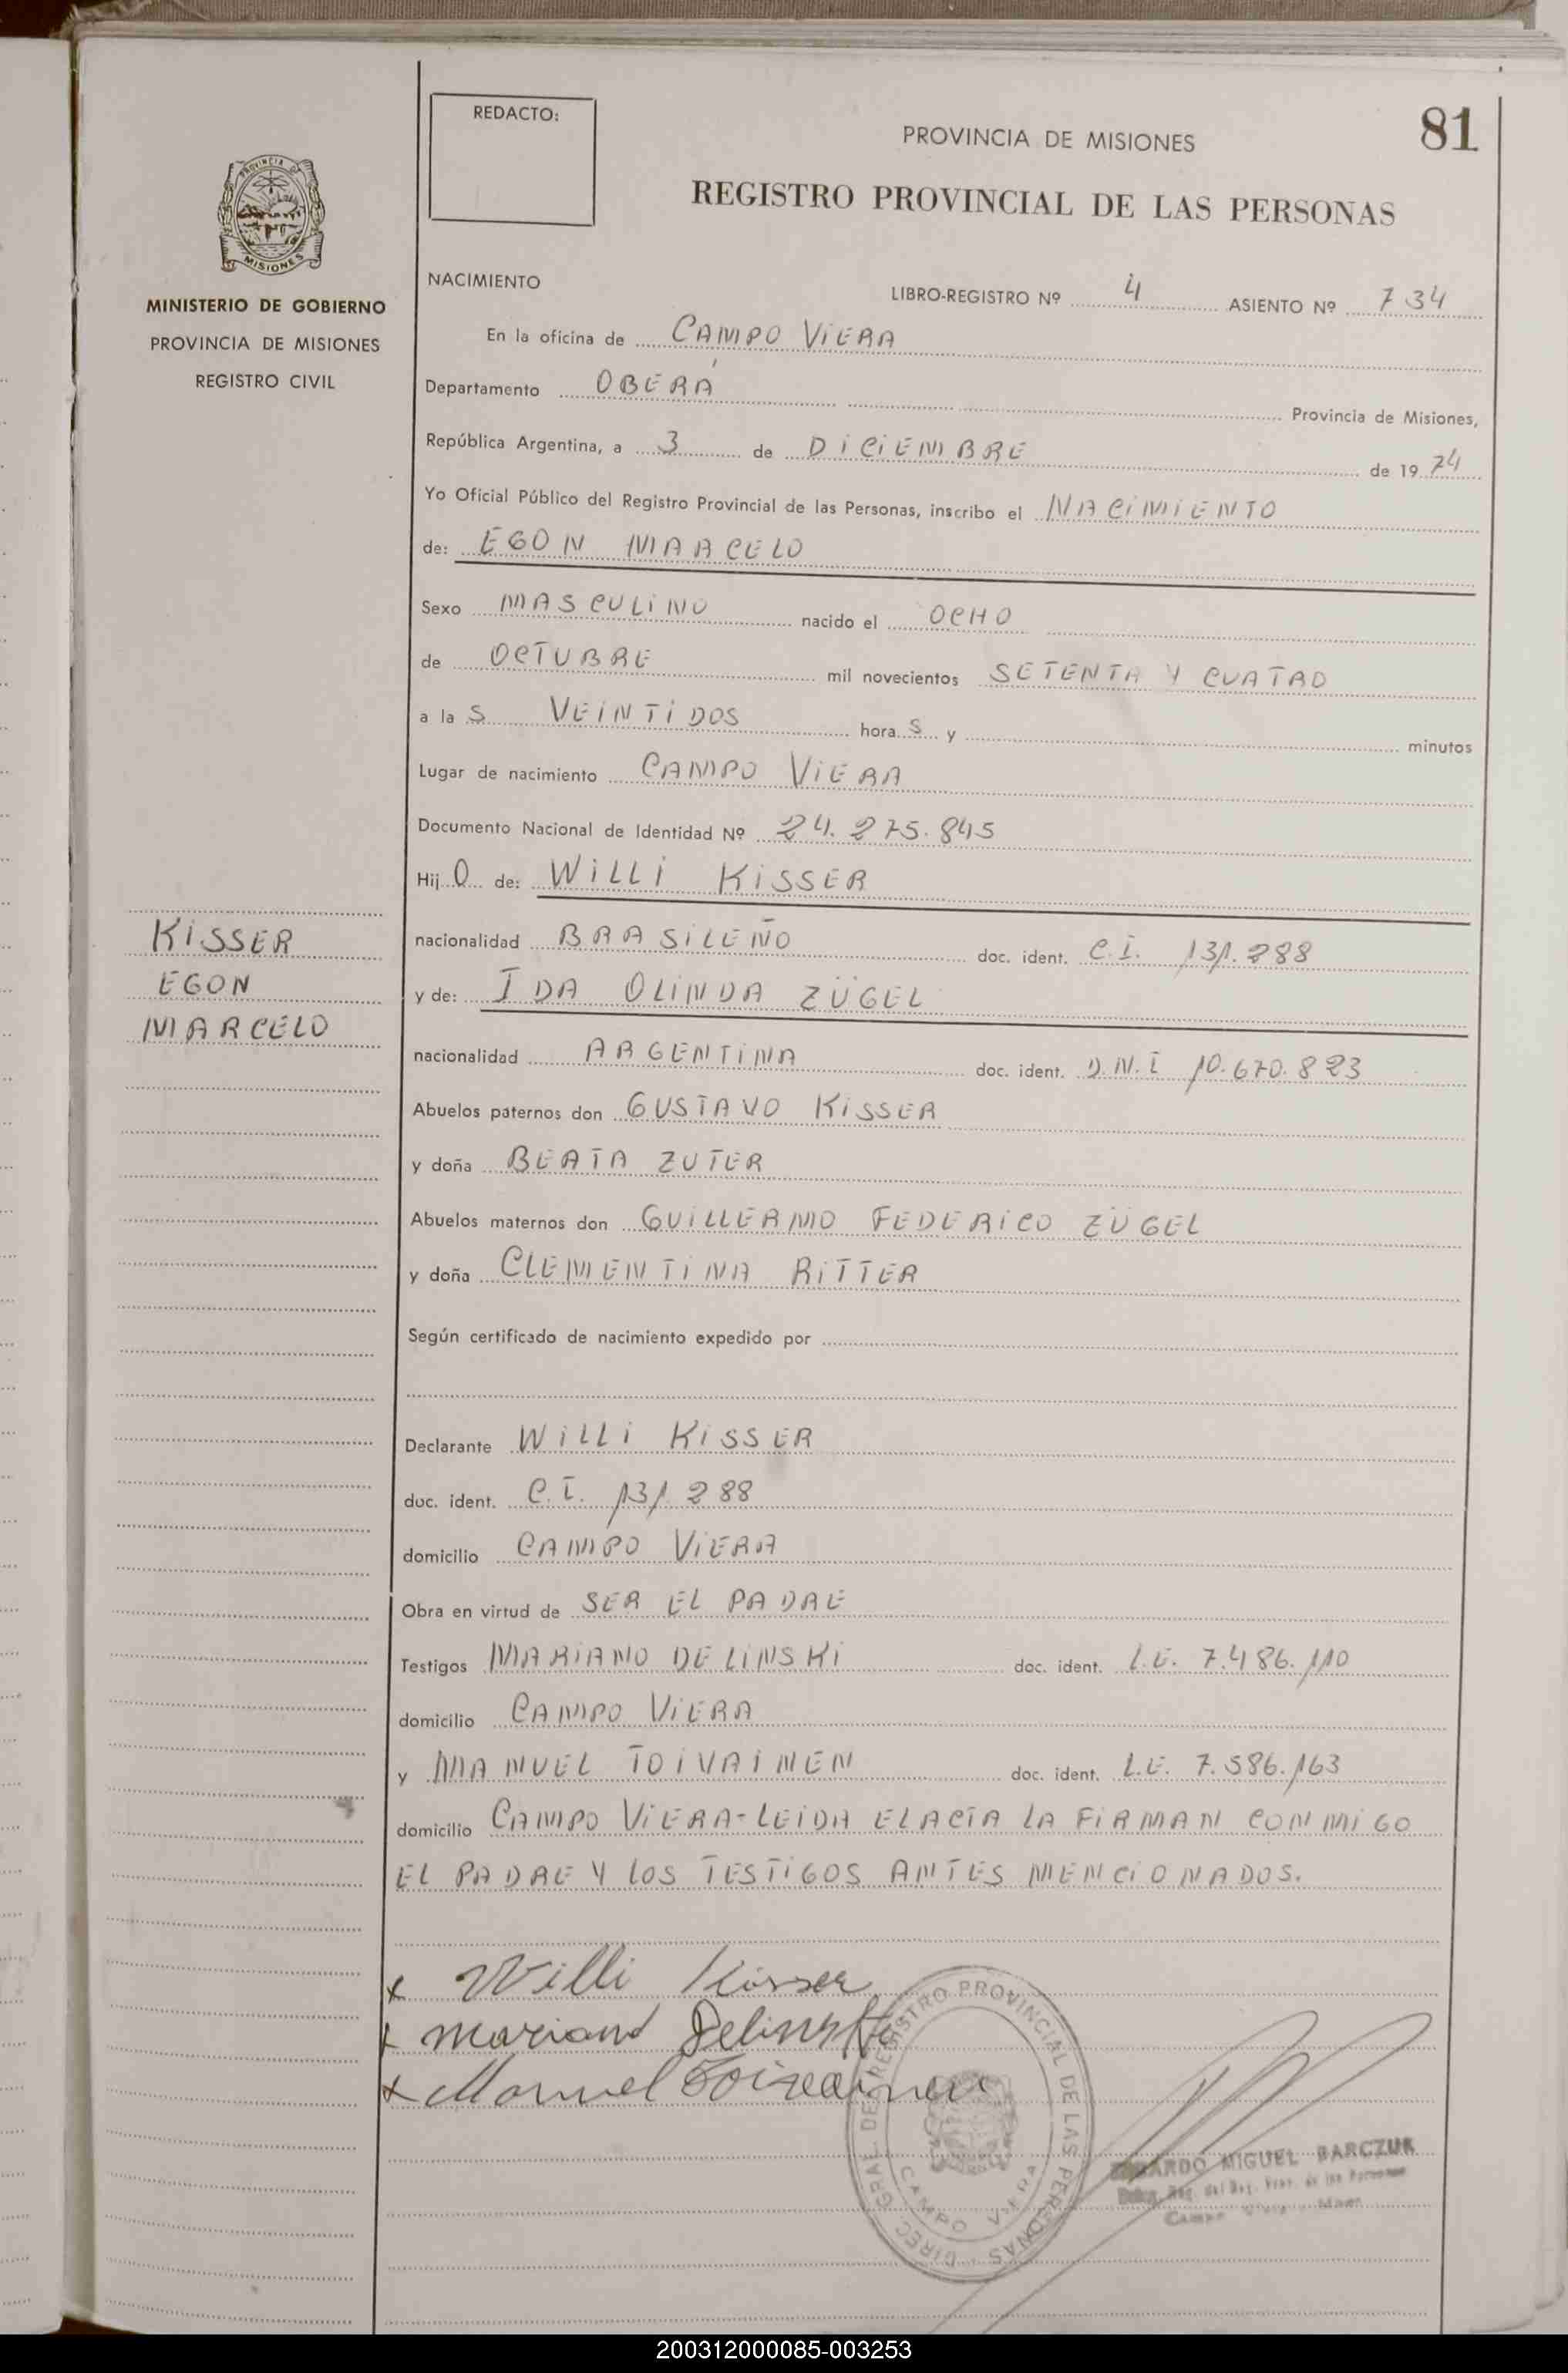 REDACTO:
81
PROVINCIA DE MISIONES
REGISTRO PROVINCIAL DE LAS PERSONAS
PROVINCIA
MISIONES
MINISTERIO DE GOBIERNO
PROVINCIA DE MISIONES
REGISTRO CIVIL
NACIMIENTO
LIBRO-REGISTRO Nº 4 ASIENTO Nº 734
En la oficina de CAMPO ViERA
Departamento OBERÁ Provincia de Misiones,
República Argentina, a 3 de DiCiEMBRE de 1974
Yo Oficial Público del Registro Provincial de las Personas, inscribo el NACiMiENTO
de: EGON MARCELO
Sexo MASCULiNO nacido el OCHO
de OCTUBRE mil novecientos SETENTA Y CUATRO
a la S VEiNTiDOS hora S y minutos
Lugar de nacimiento CAMPO ViERA
Documento Nacional de Identidad Nº 24.275.845
Hij O de: WiLLi KiSSER
nacionalidad BRASiLEÑO doc. ident. C.I. 131.288
y de: IDA OLiNDA ZÜGEL
nacionalidad ARGENTiNA doc. ident. D.N.I 10.670.823
Abuelos paternos don GUSTAVO KiSSER
y doña BEATA ZUTER
Abuelos maternos don GUiLLERMO FEDERiCO ZÜGEL
y doña CLEMENTiNA RiTTER
Según certificado de nacimiento expedido por
Declarante WiLLi KiSSER
doc. ident. C.I. 131.288
domicilio CAMPO ViERA
Obra en virtud de SER EL PADRE
Testigos MARiANO DELiNSKi doc. ident. L.E. 7.486.110
domicilio CAMPO ViERA
y MANUEL TOiVAiNEN doc. ident. L.E. 7.586.163
domicilio CAMPO ViERA-LEiDA EL ACTA LA FiRMAN CONMiGO
EL PADRE Y LOS TESTiGOS ANTES MENCiONADOS.
KiSSER
EGON
MARCELO
x Willi Kisser
x Mariano Delinski
x Manuel Toivainen
DIREC. GRAL. DEL REGISTRO PROVINCIAL DE LAS PERSONAS
CAMPO VIERA
MIGUEL BARCZUK
200312000085-003253